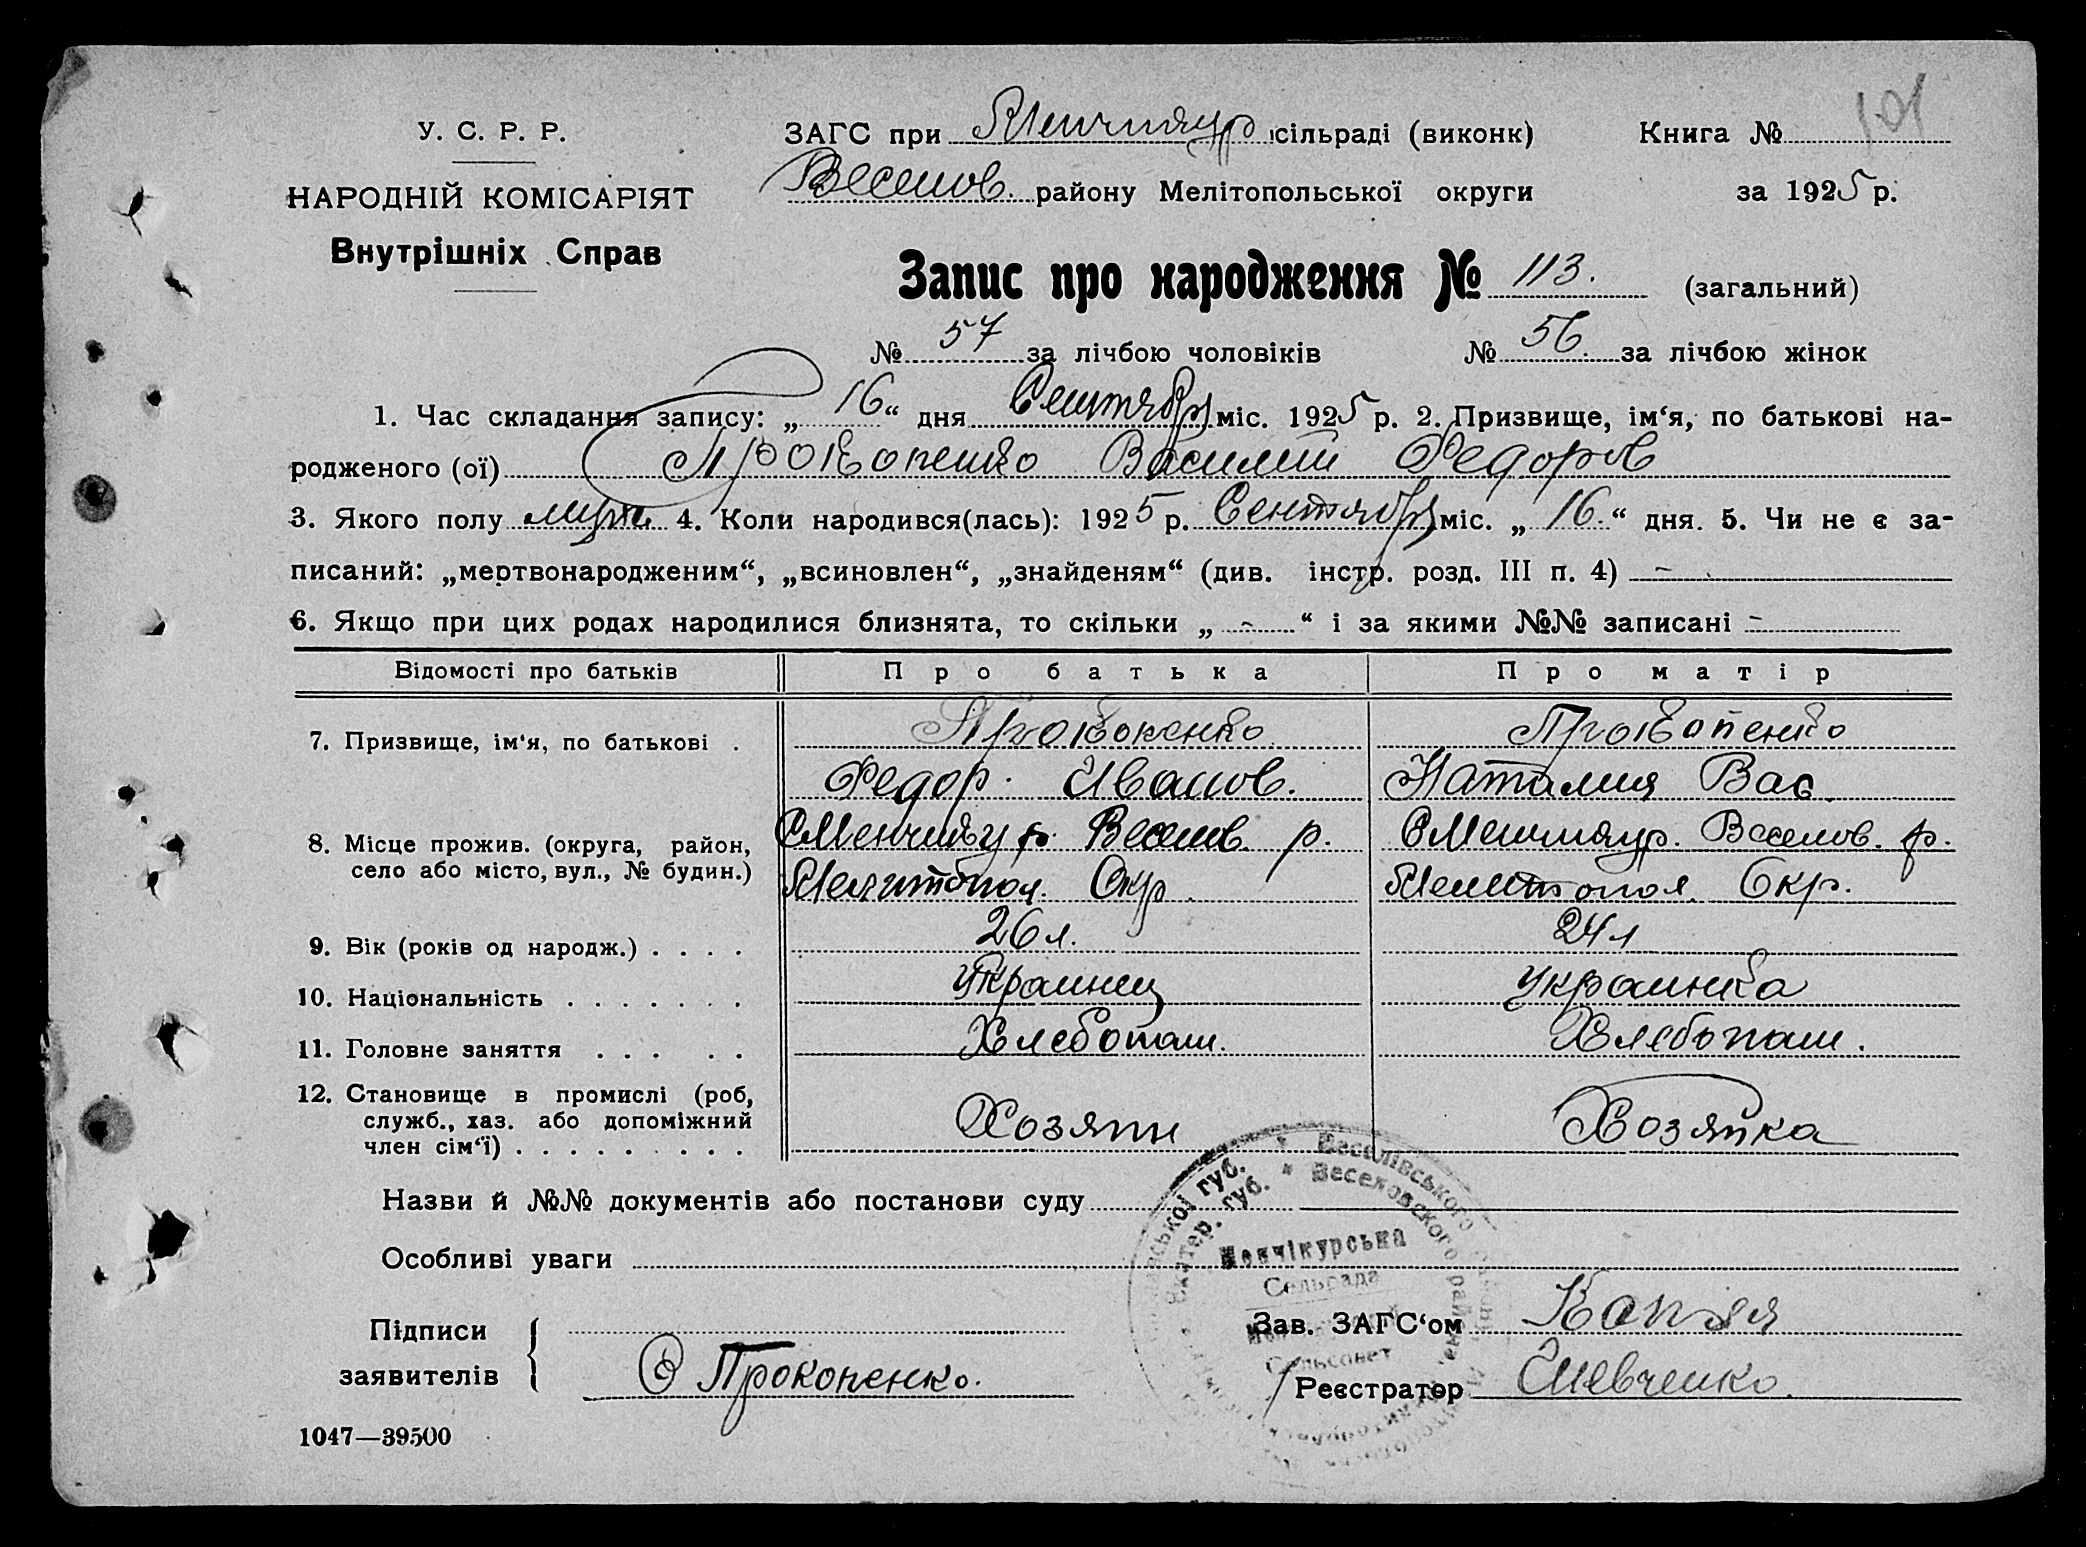 101
У. С. Р. Р.
НАРОДНІЙ КОМІСАРІЯТ
Внутрішніх Справ
ЗАГС при Менчикур сільраді (виконк)
Книга №
Веселов. району Мелітопольської округи
за 1925 р.
Запис про народження № 113. (загальний)
№ 57 за лічбою чоловіків № 56. за лічбою жінок
1. Час складання запису: „ 16 “ дня Сентября міс. 1925 р. 2. Призвище, ім‘я, по батькові на-
родженого (ої) Прокопенко Василий Федоров
3. Якого полу муж. 4. Коли народився(лась): 1925 р. Сентября міс. „ 16. “ дня. 5. Чи не є за-
писаний: „мертвонародженим“, „всиновлен“, „знайденям“ (див. інстр. розд. III п. 4) –
6. Якщо при цих родах народилися близнята, то скільки „ – “ і за якими №№ записані –
Відомості про батьків Про батька Про матір
7. Призвище, ім‘я, по батькові . Прокопенко Прокопенко
Федор. Иванов. Наталия Вас
8. Місце прожив. (округа, район, село або місто, вул., № будин.) С Менчикур Веселов. р. С Менчикур. Веселов. р.
Мелитопол. Окр. Мелитопол. Окр.
9. Вік (років од народж.) . . . . 26 л. 24 л
10. Національність . . . . . . . Украинец Украинка
11. Головне заняття . . . . . Хлебопаш. Хлебопаш.
12. Становище в промислі (роб, служб., хаз. або допоміжний член сім‘ї) . . . . . . . . . Хозяин Хозяйка
Назви й №№ документів або постанови суду
Особливі уваги
Веселівського
губ. * Веселовского рай
Екатер. губ.
Менчікурська
Сельрада
Сельсовет
Підписи
заявителів
Ф Прокопенко.
Зав. ЗАГС‘ом
Реєстратор Шевченко.
1047—39500